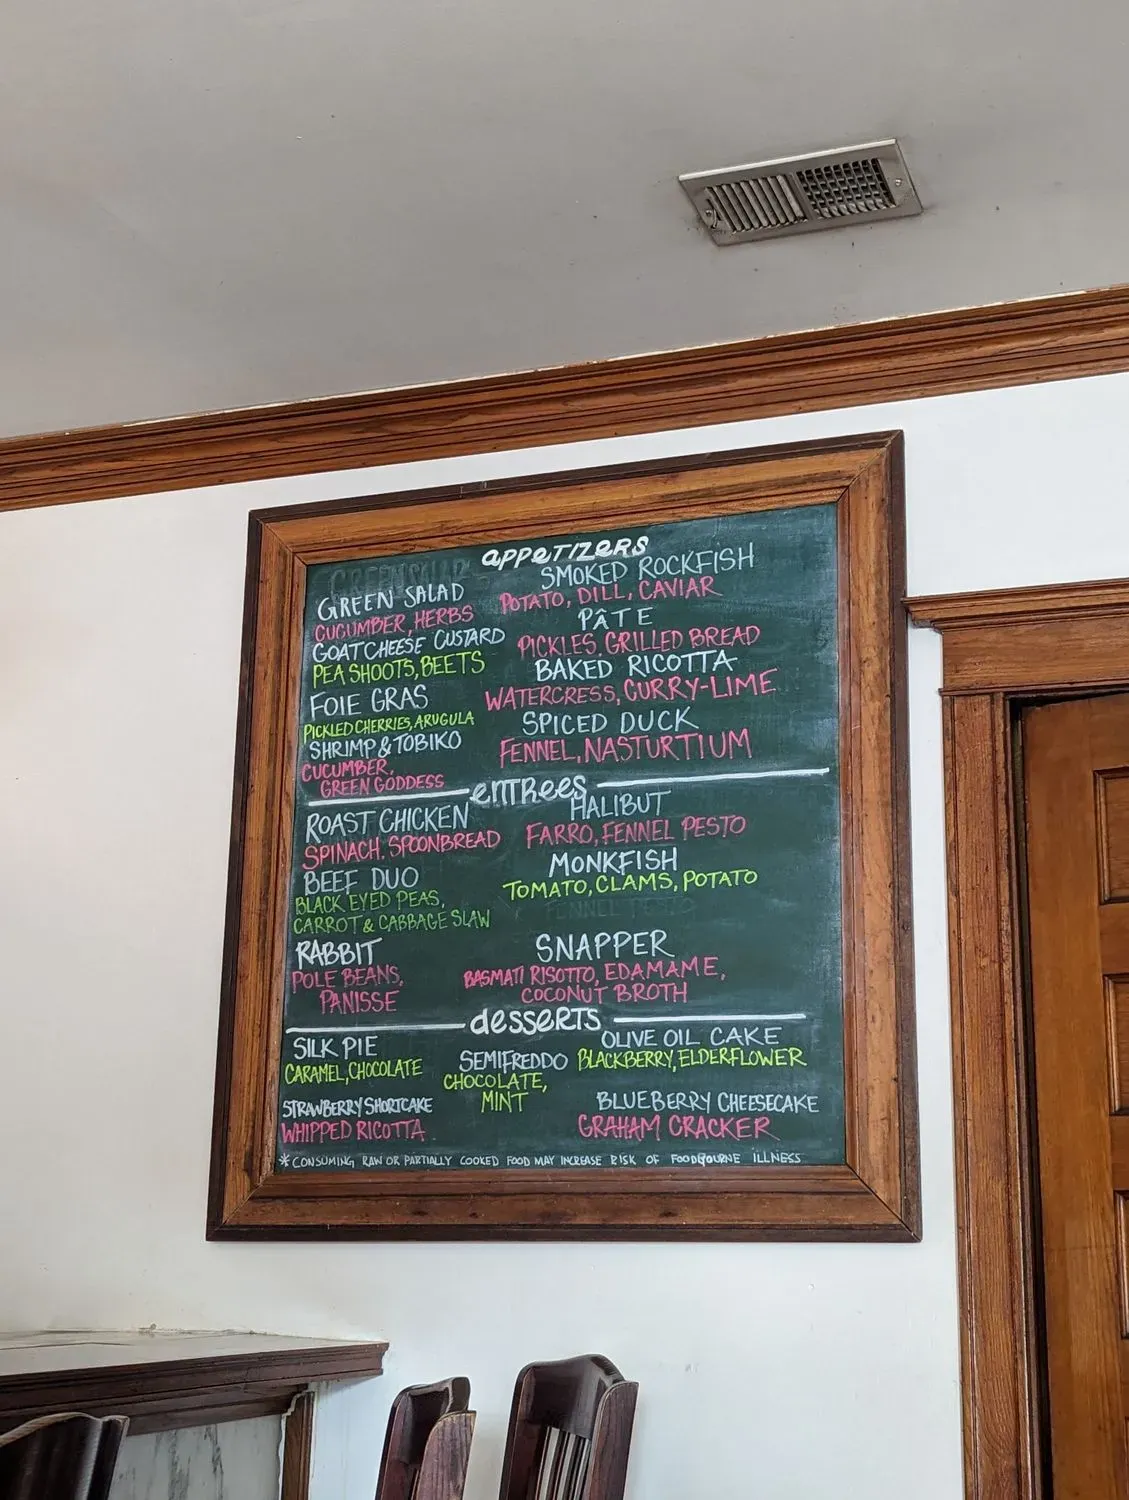 appetizers
GREEN SALAD
GREEN SALAD
CUCUMBER, HERBS
GOAT CHEESE CUSTARD
PEA SHOOTS, BEETS
FOIE GRAS
PICKLED CHERRIES, ARUGULA
SHRIMP & TOBIKO
CUCUMBER,
GREEN GODDESS
SMOKED ROCKFISH
POTATO, DILL, CAVIAR
PÂTE
PICKLES, GRILLED BREAD
BAKED RICOTTA
WATERCRESS, CURRY-LIME
SPICED DUCK
FENNEL, NASTURTIUM
entrees
ROAST CHICKEN
SPINACH, SPOONBREAD
BEEF DUO
BLACK EYED PEAS,
CARROT & CABBAGE SLAW
RABBIT
POLE BEANS,
PANISSE
HALIBUT
FARRO, FENNEL PESTO
MONKFISH
TOMATO, CLAMS, POTATO
FENNEL PESTO
SNAPPER
BASMATI RISOTTO, EDAMAME,
COCONUT BROTH
desserts
SILK PIE
CARAMEL, CHOCOLATE
STRAWBERRY SHORTCAKE
WHIPPED RICOTTA
SEMIFREDDO
CHOCOLATE,
MINT
OLIVE OIL CAKE
BLACKBERRY, ELDERFLOWER
BLUEBERRY CHEESECAKE
GRAHAM CRACKER
*CONSUMING RAW OR PARTIALLY COOKED FOOD MAY INCREASE RISK OF FOODBOURNE ILLNESS